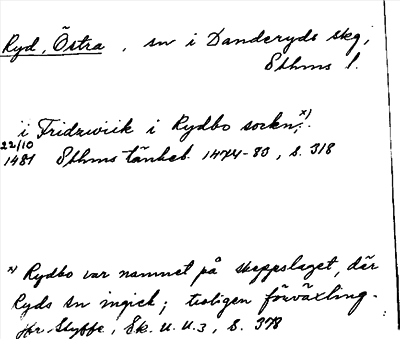 Ryd, Östra, sn i Danderyds skg,
Sthms l.
i Fridzwiik i Rydbo sockn, x)
22/10
1481 Sthms tänkeb. 1474-83, s. 318
x) Rydbo var namnet på skeppslaget, där
Ryds sn ingick; troligen förväxling.
jfr Styffe, Sk. U. U. 3, s. 378